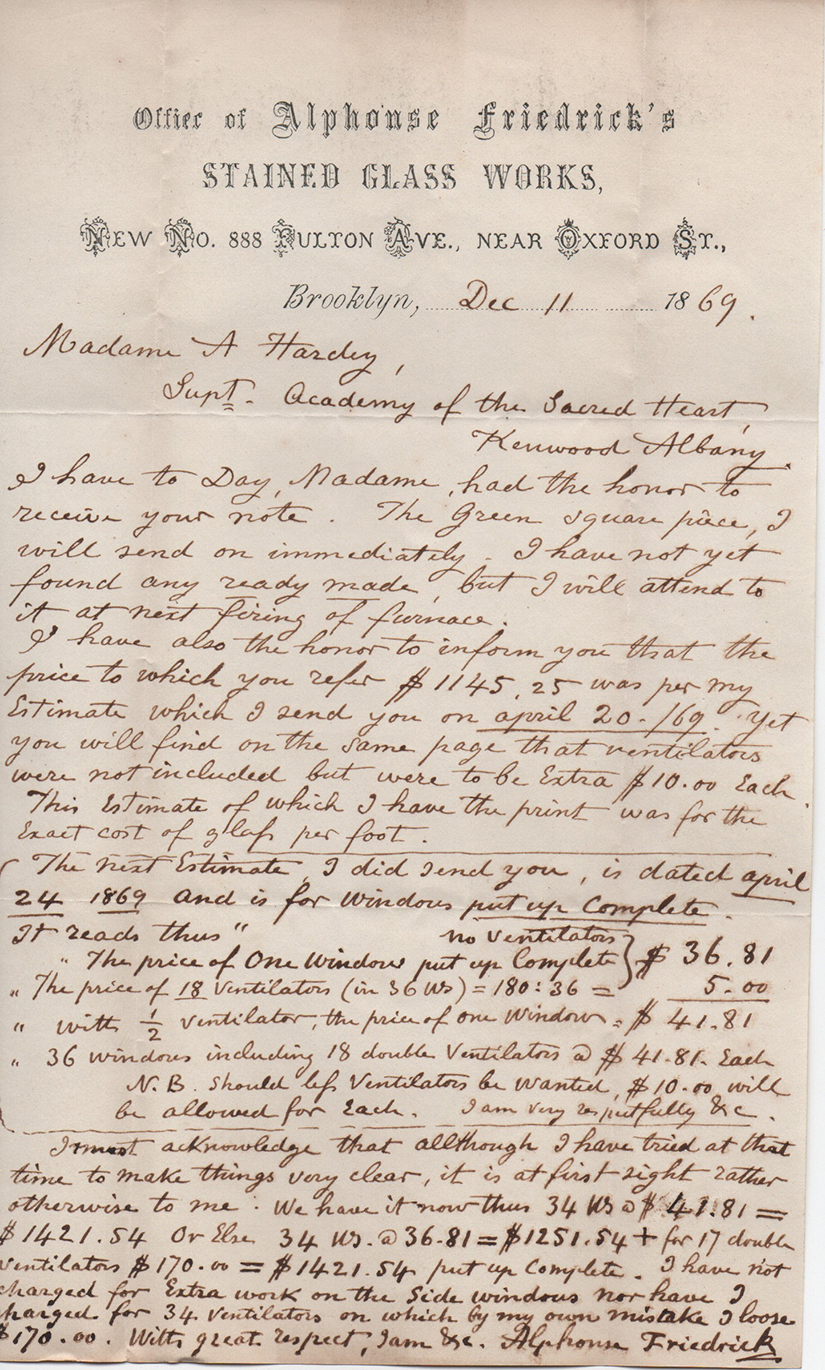 Office of Alphonse Friedrick's
STAINED GLASS WORKS,
NEW NO. 888 FULTON AVE., NEAR OXFORD ST.,
Brooklyn, Dec 11 1869.
Madame A Hardey,
Supt. Academy of the Sacred Heart,
Kenwood Albany.
I have to Day, Madame, had the honor to
receive your note. The Green square piece, I
will send on immediately. I have not yet
found any ready made, but I will attend to
it at next firing of furnace.
I have also the honor to inform you that the
price to which you refer $1145,25 was per my
Estimate which I send you on april 20-/69. Yet
you will find on the same page that ventilators
were not included but were to be Extra $10.00 Each.
This Estimate of which I have the print was for the
Exact cost of glass per foot.
The next Estimate, I did send you, is dated april
24 1869 and is for Windows put up Complete.
It reads thus "
no Ventilators
" The price of One Window put up Complete } $ 36.81
" The price of 18 Ventilators (in 36 Ws) = 180:36 = 5.00
" with ½ ventilator, the price of one Window = $ 41.81
" 36 windows including 18 double Ventilators @ $ 41.81. Each
N.B. Should less Ventilators be wanted, $10.00 will
be allowed for Each. I am very respectfully &c.
I must acknowledge that allthough I have tried at that
time to make things very clear, it is at first sight rather
otherwise to me. We have it now thus 34 Ws @ $ 41.81 =
$1421.54 Or Else 34 Ws. @ 36.81 = $1251.54 + for 17 double
ventilators $170.00 = $1421.54 put up Complete. I have not
charged for Extra work on the Side windows nor have I
charged for 34 ventilators on which by my own mistake I loose
$170.00. With great respect, I am &c. Alphonse Friedrick